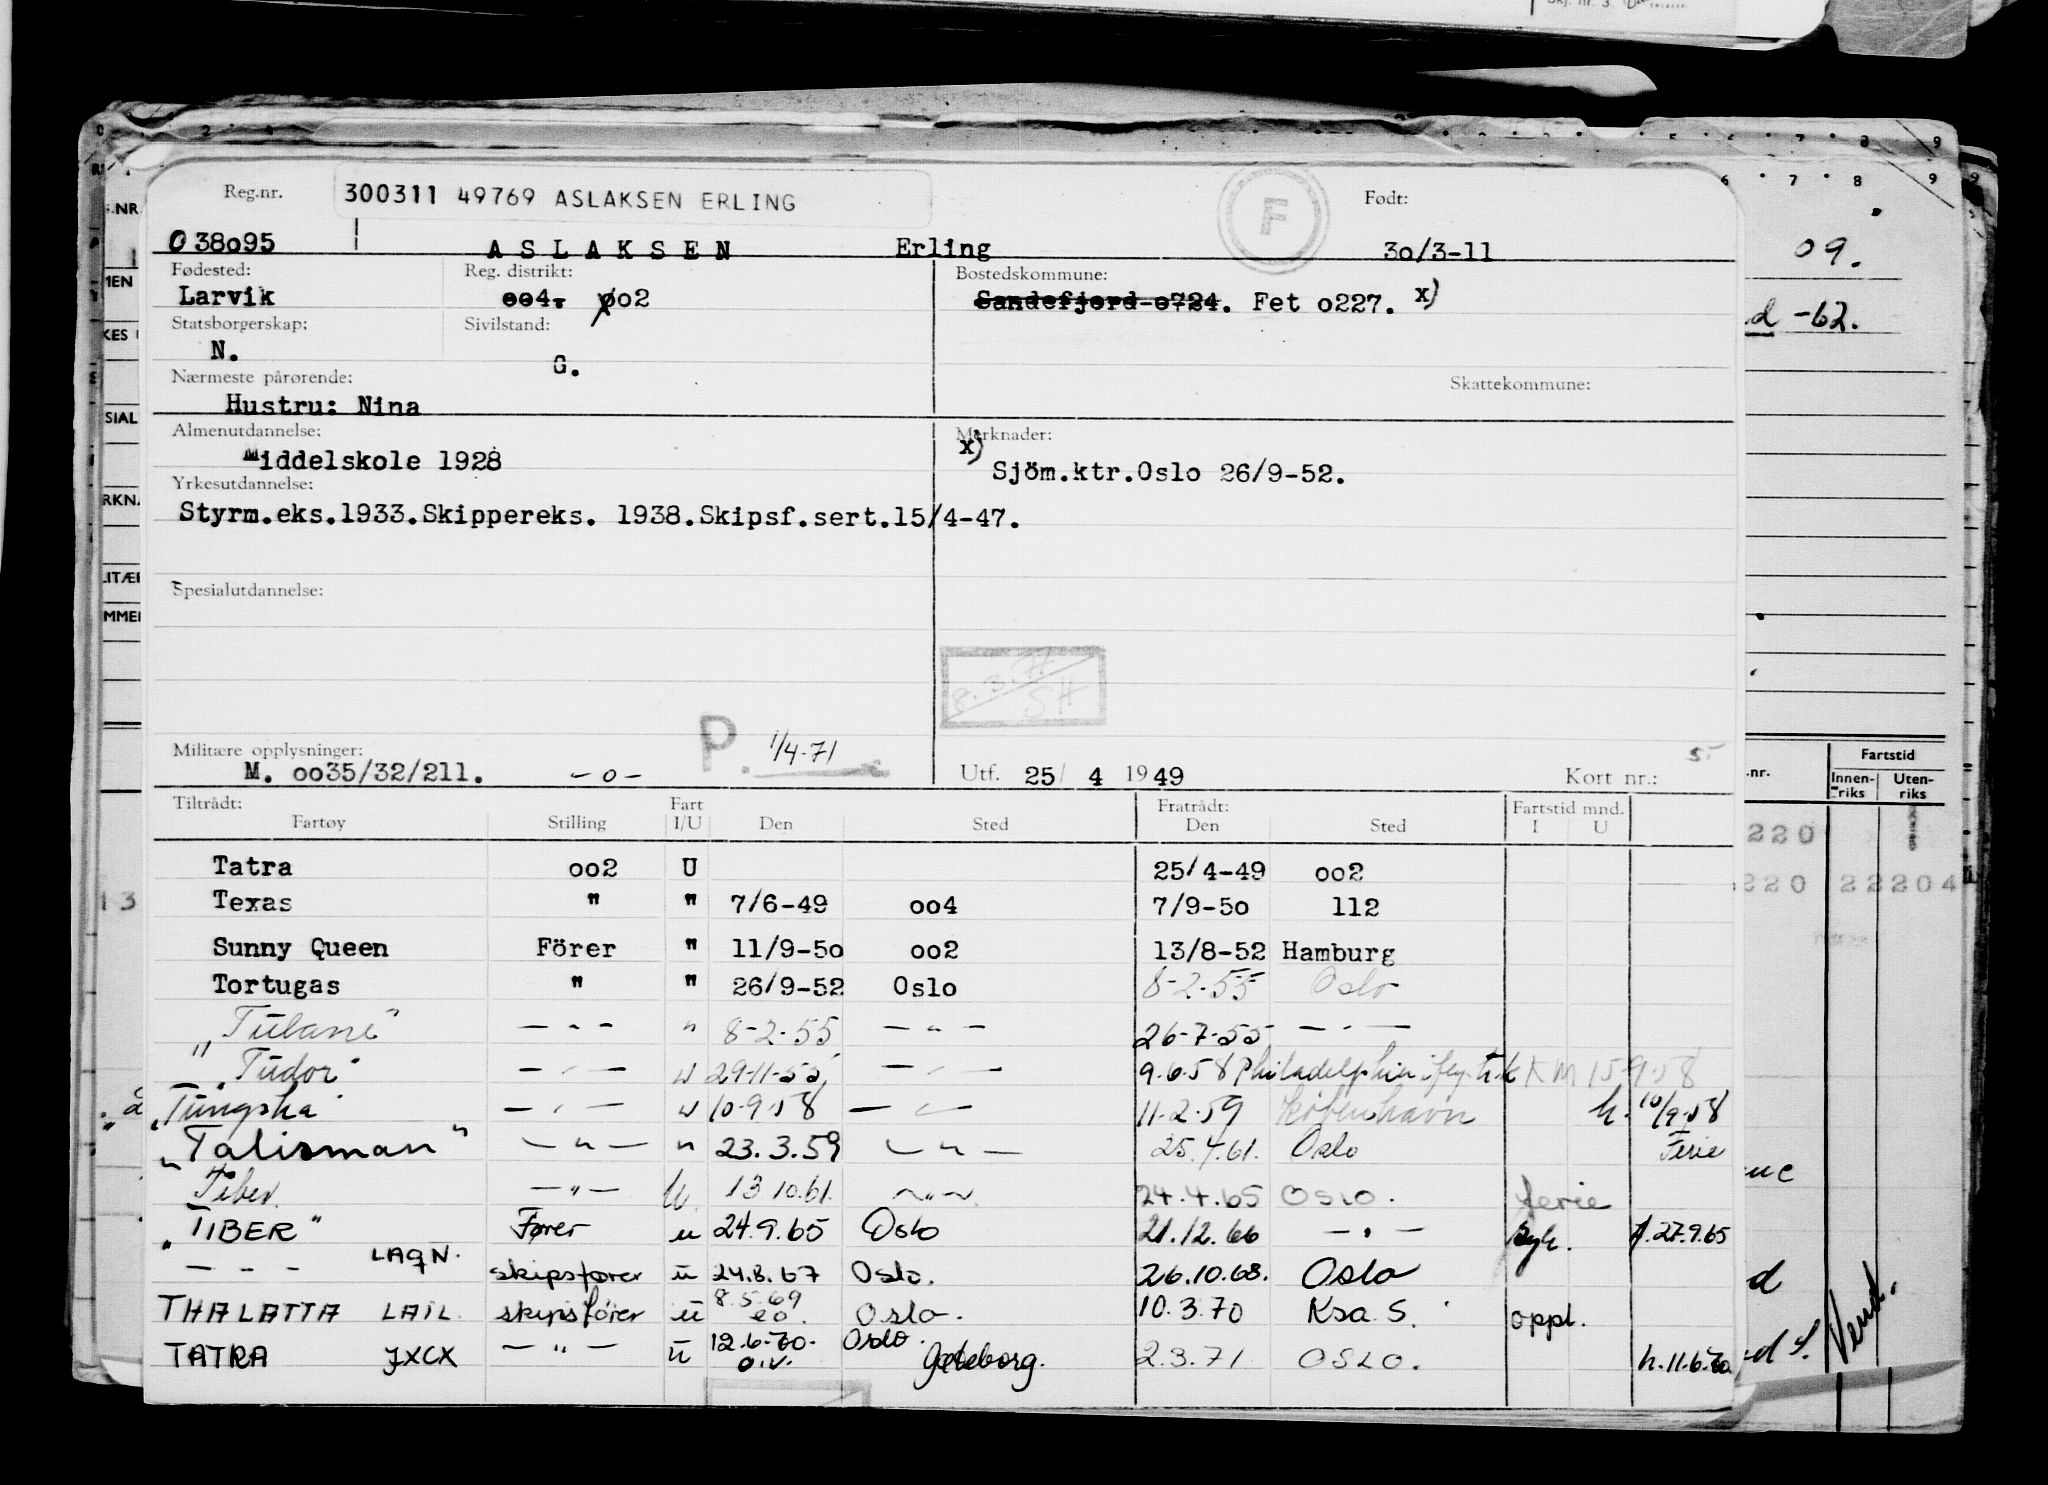 Reg.nr. 300311 49769 ASLAKSEN ERLING F Født:
038o95 ASLAKSEN Erling 3o/3-11
Fødested: Reg. distrikt: Bostedskommune:
Larvik oo4. oo2 Sandefjord o724. Fet o227. x)
Statsborgerskap: Sivilstand:
N. G.
Nærmeste pårørende: Skattekommune:
Hustru: Nina
Almenutdannelse: Merknader:
Middelskole 1928 x) Sjöm.ktr.Oslo 26/9-52.
Yrkesutdannelse:
Styrm.eks.1933.Skippereks. 1938.Skipsf.sert.15/4-47.
Spesialutdannelse:
8.3.71
SH
P. 1/4-71
Militære opplysninger:
M. oo35/32/211. -o- Utf. 25/ 4 1949 Kort nr.: 5
Tiltrådt: Fart Fratrådt: Fartstid mnd.
Fartøy Stilling I/U Den Sted Den Sted I U
Tatra oo2 U 25/4-49 oo2
Texas " " 7/6-49 oo4 7/9-5o 112
Sunny Queen Förer " 11/9-5o oo2 13/8-52 Hamburg
Tortugas " " 26/9-52 Oslo 8-2-55 Oslo
"Tulane" — " — " 8-2-55 — " — 26-7-55 — " —
"Tudor" — " — u 29-11-55 — " — 9.6.58 Philadelphia 15-9-58
"Tungsha" — " — u 10-9-58 — " — 11-2-59 København h. 10/9-58
"Talisman" — " — " 23.3.59 — " — 25.4.61. Oslo Ferie
Tiber — " — u 13 10.61. — " — 24.4.65 OSLO. ferie
"TIBER" Fører u 24.9.65 Oslo 21.12.66 — " — Syk. h.27.9.65
— - — LAQN. skipsfører u 24.8.67 Oslo. 26.10.68. Oslo
THALATTA LAIL. skipsfører u 8.5.69 eo. Oslo. 10.3.70 Ksa. S. oppl.
TATRA JXCX — " — u 12.6.70. o.v. Oslo. Gøteborg. 2.3.71 OSLO. h.11.6.70
09.
-62.
Fartstid
.nr. Innen-riks Uten-riks
220
220 22204